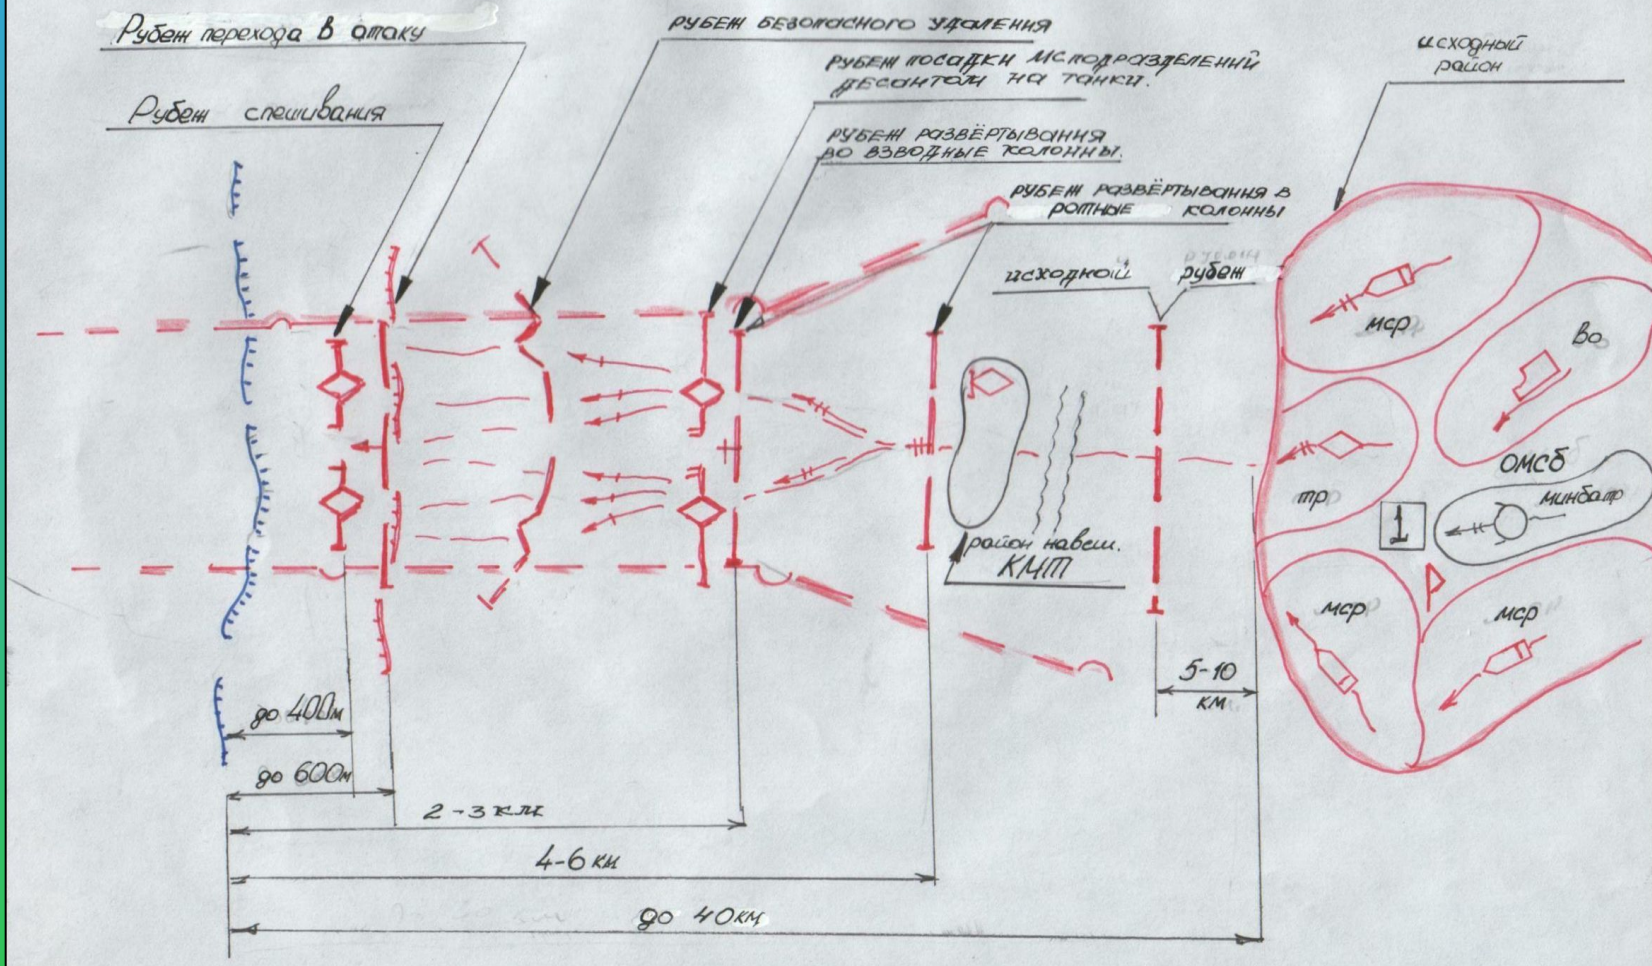 Рубеж перехода в атаку
Рубеж спешивания
РУБЕЖ БЕЗОПАСНОГО УДАЛЕНИЯ
РУБЕЖ ПОСАДКИ МСПОДРАЗДЕЛЕНИЙ
ДЕСАНТОМ НА ТАНКИ.
РУБЕЖ РАЗВЁРТЫВАНИЯ
ВО ВЗВОДНЫЕ КОЛОННЫ.
РУБЕЖ РАЗВЁРТЫВАНИЯ В
РОТНЫЕ КОЛОННЫ
исходной рубеж
исходный
район
мср
Во
тр
ОМСБ
минбатр
1
Р
мср
мср
К
Т
район навеш.
КМТ
5-10
км
до 400м
до 600м
2-3 км
4-6 км
до 40км